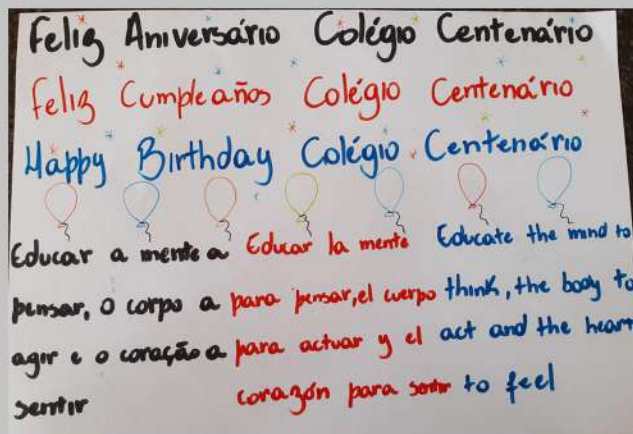 Feliz Aniversário Colégio Centenário
Feliz Cumpleaños Colégio Centenário
Happy Birthday Colégio Centenário
Educar a mente a
pensar, o corpo a
agir e o coração a
sentir
Educar la mente
para pensar, el cuerpo
para actuar y el
corazón para sentir
Educate the mind to
think, the body to
act and the heart
to feel